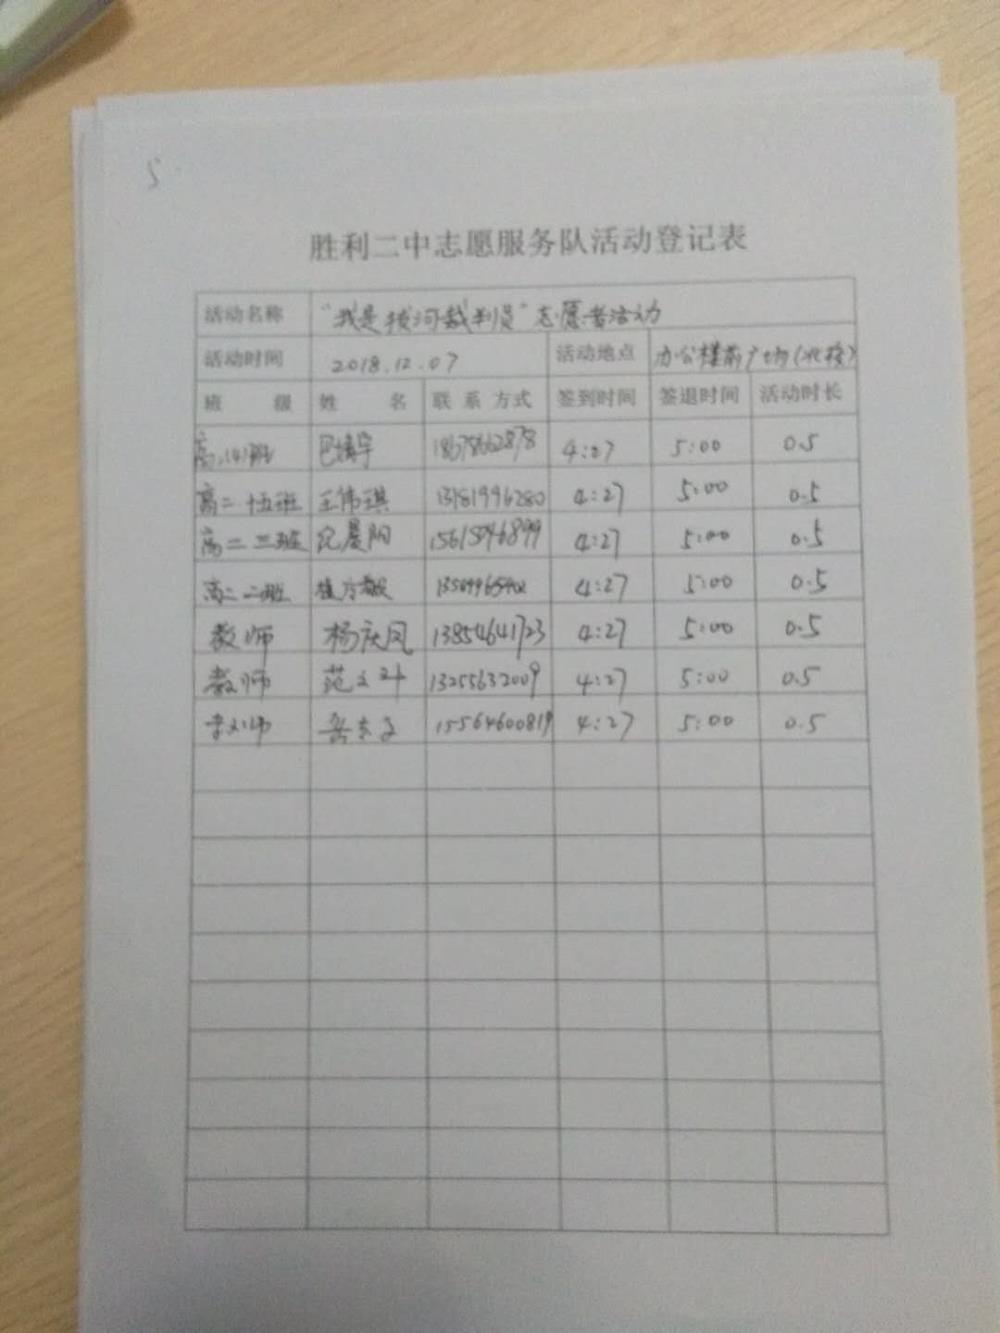 5
胜利二中志愿服务队活动登记表
活动名称 "我是拔河裁判员"志愿者活动
活动时间 2018.12.07 活动地点 办公楼前广场(北校)
班 级 姓 名 联系方式 签到时间 签退时间 活动时长
18678662878 4:27 5:00 0.5
高二十五班 王伟琪 13181996280 4:27 5:00 0.5
高二三班 纪晨阳 15615046899 4:27 5:00 0.5
高二二班 4:27 5:00 0.5
教师 杨庆凤 13854641723 4:27 5:00 0.5
教师 范文叶 13255632009 4:27 5:00 0.5
教师 15564600819 4:27 5:00 0.5